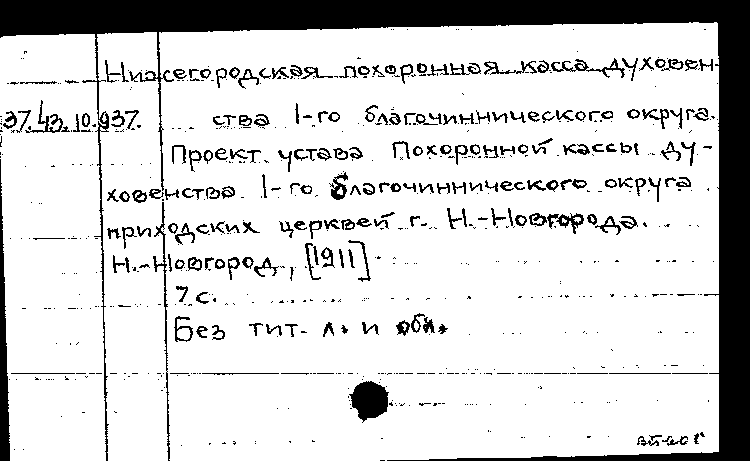 Нижегородская похоронная касса духовен-
37.43.10.937. ства 1-го благочиннического округа.
Проект устава Похоронной кассы ду-
ховенства 1-го благочиннического округа
приходских церквей г. Н.-Новгорода.
Н.-Новгород, [1911]
7 с.
Без тит. л. и обл.